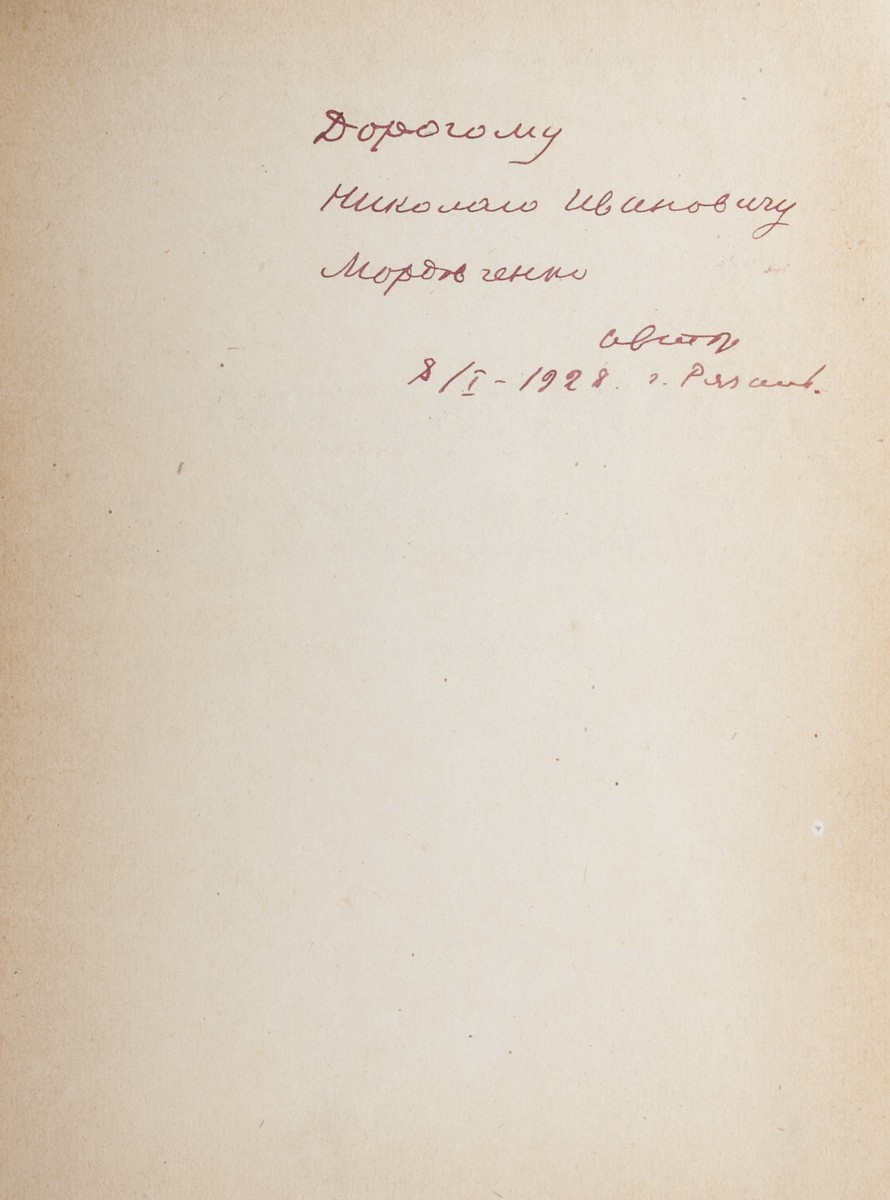 Дорогому
Николаю Ивановичу
Мордовченко
автор
8/I - 1928. г. Рязань.